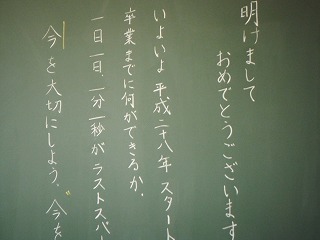 明けまして
おめでとうございます
いよいよ平成二十八年スタート
卒業までに何ができるか、
一日一日、一分一秒がラストスパー
今を大切にしよう。"今を